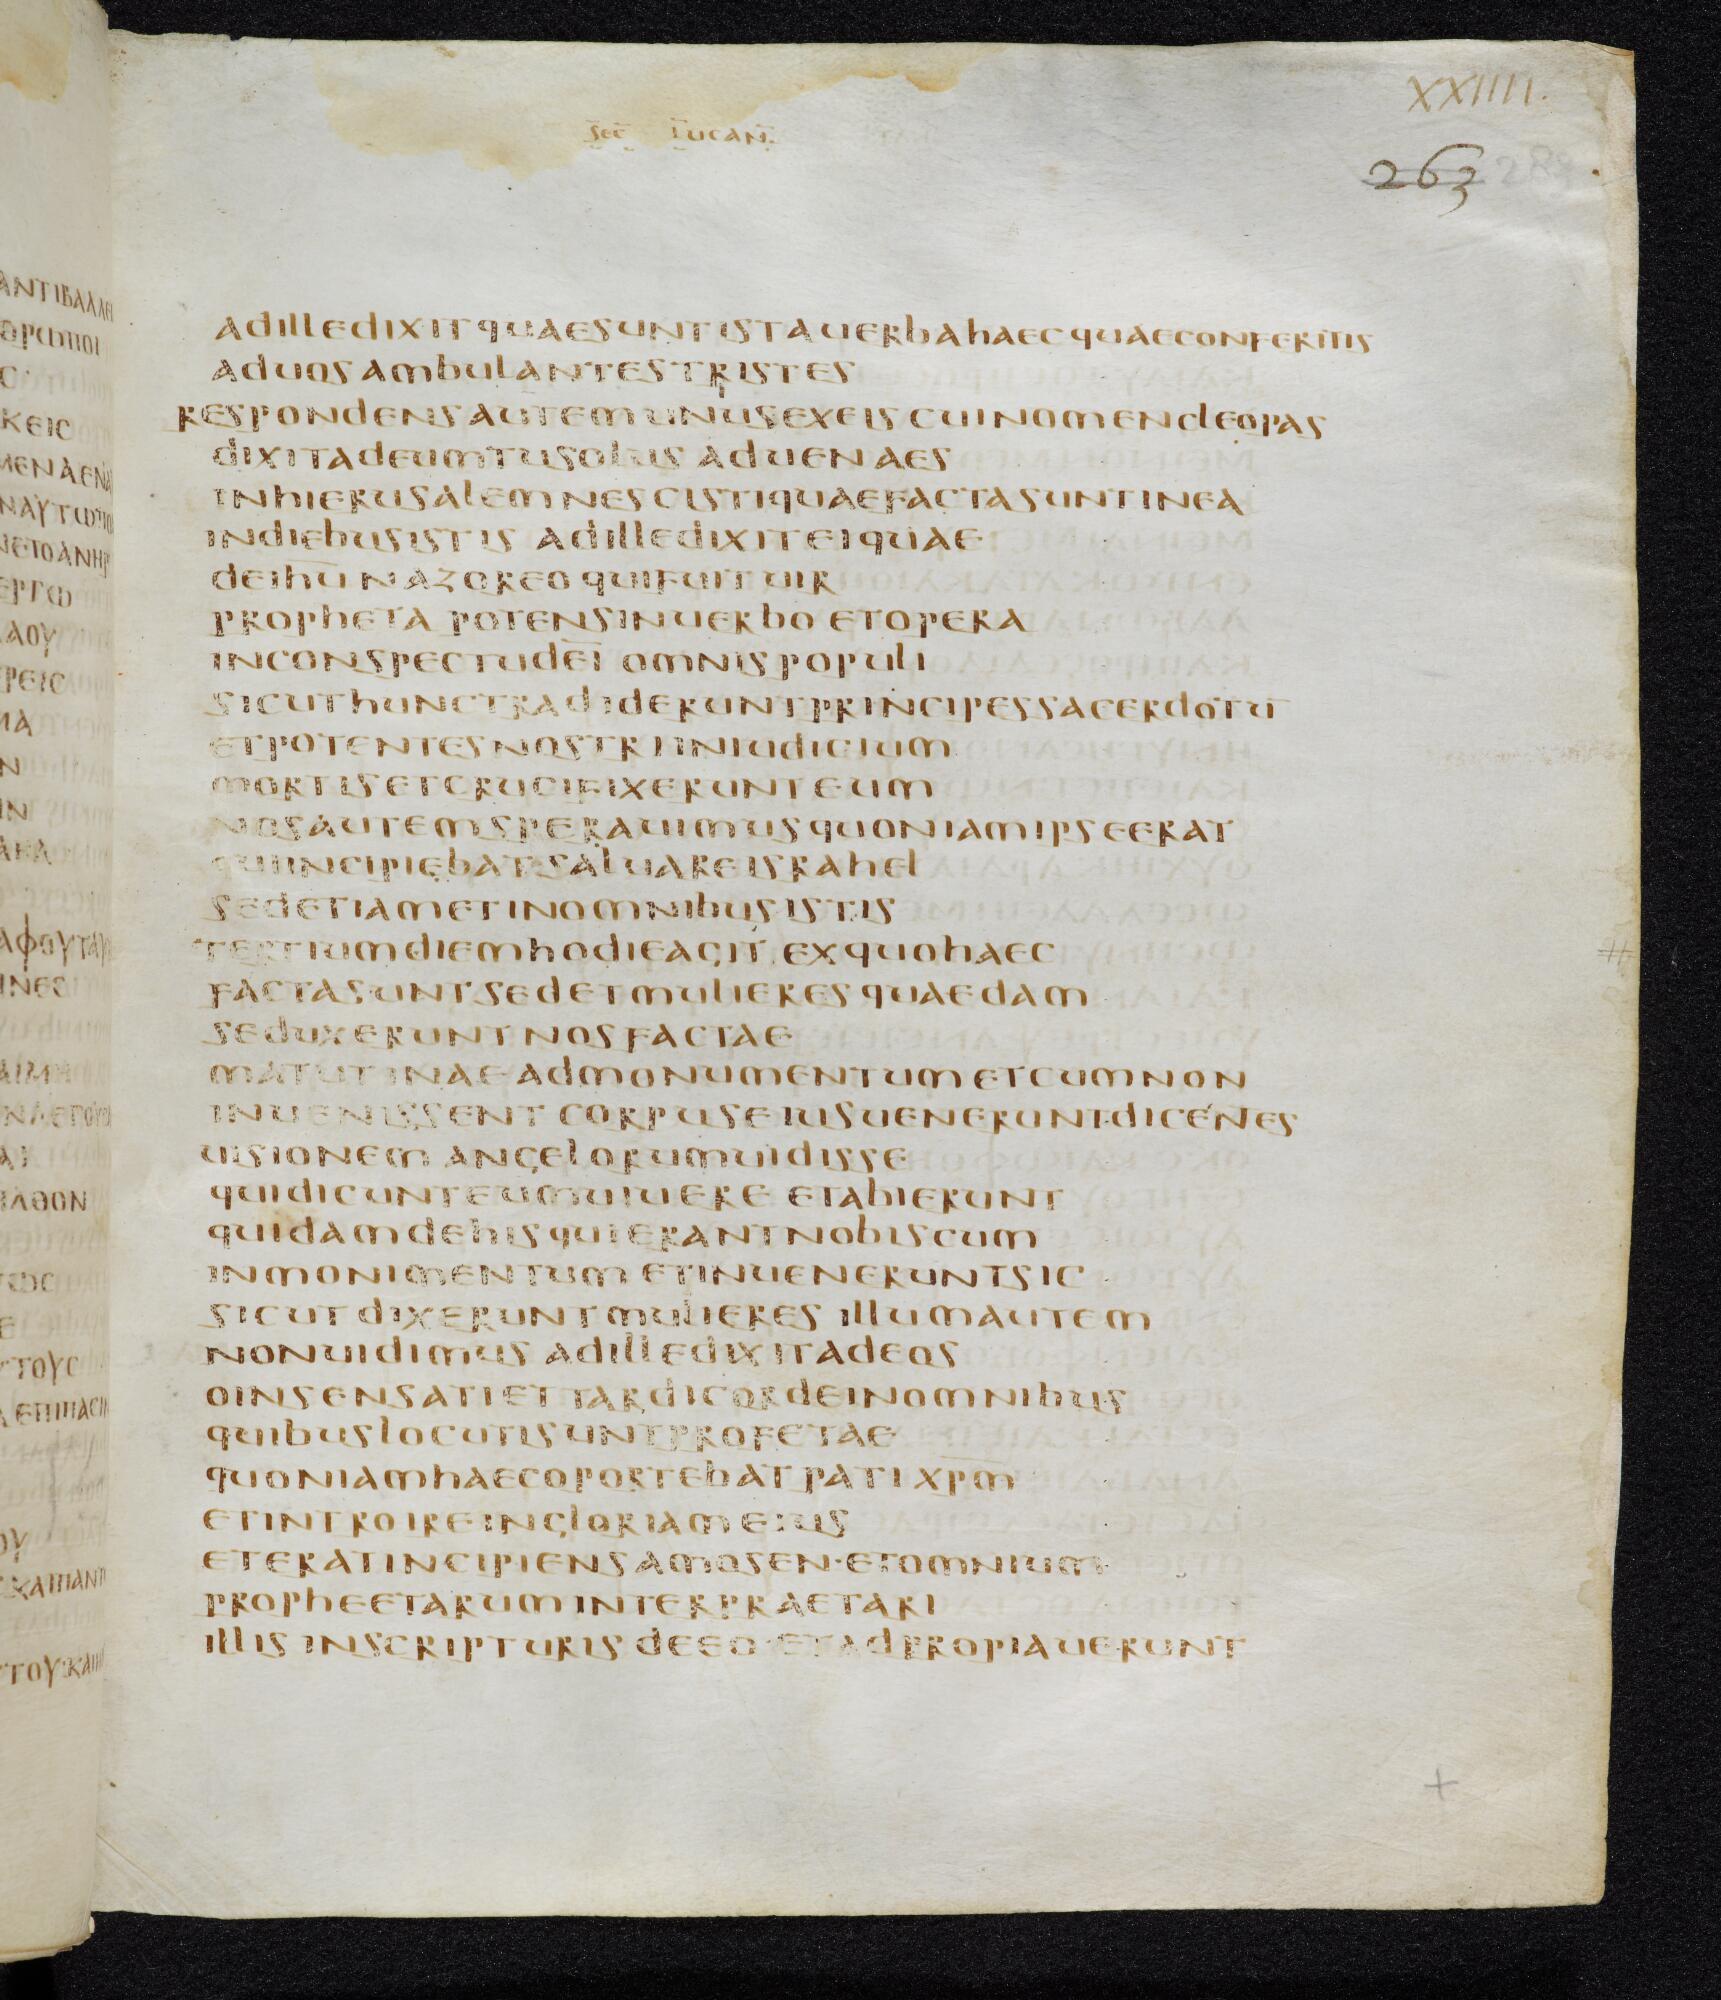 XXIIII.
Sec Lucan.
263 289
adilledixitquaesuntistauerbahaecquaeconferitis
aduosambulantestristes
respondensautemunusexeiscuinomencleopas
dixitadeumtusolusaduenaes
inhierusalemnescistiquaefactasuntinea
indiebusistis adilledixiteiquae
deihu̅ nazoreoquifuituir
propheta potensinuerbo etopera
inconspectudei̅ omnispopuli
sicuthunctradideruntprincipessacerdotu̅
etpotentesnostriiniudicium
mortisetcrucifixerunteum
nosautemsperauimusquoniamipseerat
quiincipiebatsaluareisrahel
sedetiametinomnibusistis
tertiumdiemhodieagit exquohaec
factasuntsedetmulieresquaedam
seduxeruntnosfactae
matutinaeadmonumentumetcumnon
inuenissent corpuseiusuenerunt·dicentes
uisionem angelorumuidisse
quidicunteumuiuere etabierunt
quidamdehisquierantnobiscum
inmonimentum etinueneruntsic
sicutdixeruntmulieres illumautem
nonuidimus adilledixitadeos
oinsensatiettardicordeinomnibus
quibuslocutisuntprofetae
quoniamhaecoportebatpatixpm̅
etintroireingloriameius
eteratincipiensamosen·etomnium
propheetaruminterpraetari
illis inscripturisdeeo·etadpropiauerunt
ΑΝΤΙΒΑΛΛΕ
ΘΡΩΠΟΙ
ΚΕΙС
ΝΕΤΟΑΝΗΡ
ΕΡΓΩ
ΛΑΟΥ
ΡΕΙС
ΜΑ
Ν
ΙΝ
ΙΝΕС
ΗΛΘΟΝ
Ε
ΤΟΥС
ΟΥ
ΤΟΥ·ΚΑΙ